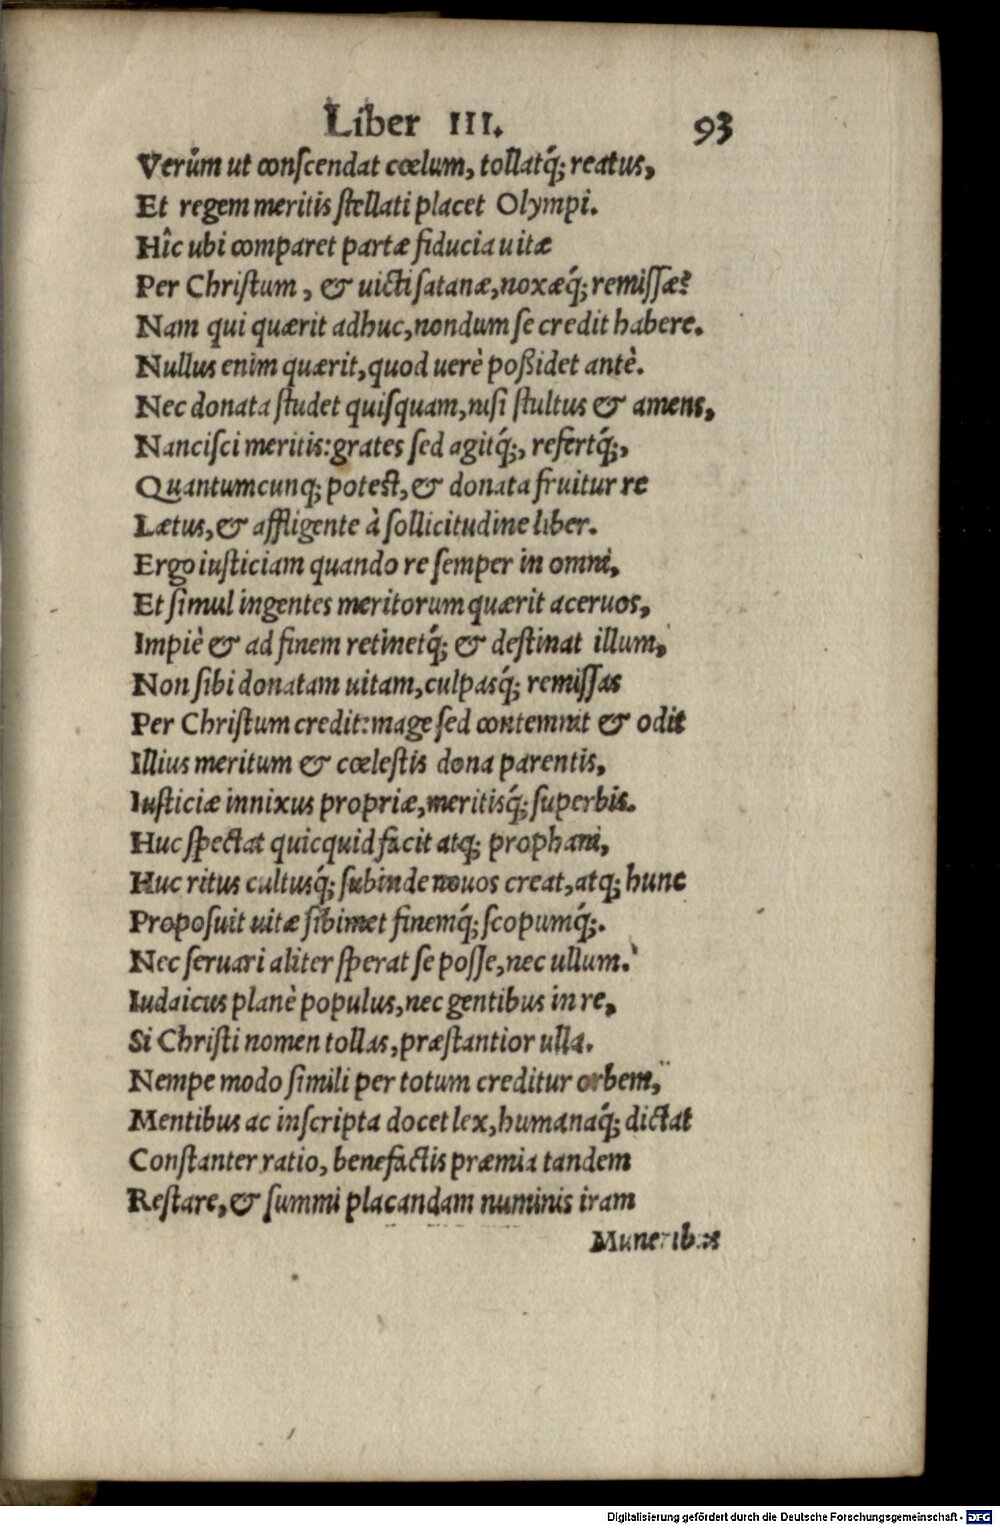 Liber III. 93
Verùm ut conſcendat cœlum, tollatq́; reatus,
Et regem meritis ſtellati placet Olympi.
Hîc ubi comparet partæ fiducia uitæ
Per Chriſtum, & uicti ſatanæ, noxæq́; remiſſæ?
Nam qui quærit adhuc, nondum ſe credit habere.
Nullus enim quærit, quod uerè poßidet antè.
Nec donata ſtudet quiſquam, niſi ſtultus & amens,
Nanciſci meritis: grates ſed agitq́;, refertq́;,
Quantumcunq; poteſt, & donata fruitur re
Lætus, & affligente à ſollicitudine liber.
Ergo iuſticiam quando re ſemper in omni,
Et ſimul ingentes meritorum quærit aceruos,
Impiè & ad finem retinetq́; & deſtinat illum,
Non ſibi donatam uitam, culpasq́; remiſſas
Per Chriſtum credit: mage ſed contemnit & odit
Illius meritum & cœleſtis dona parentis,
Iuſticiæ innixus propriæ, meritisq́; ſuperbis.
Huc ſpectat quicquid facit atq; prophani,
Huc ritus cultusq́; ſubinde nouos creat, atq; hunc
Propoſuit uitæ ſibimet finemq́; ſcopumq́;.
Nec ſeruari aliter ſperat ſe poſſe, nec ullum.
Iudaicus planè populus, nec gentibus in re,
Si Chriſti nomen tollas, præſtantior ulla.
Nempe modo ſimili per totum creditur orbem,
Mentibus ac inſcripta docet lex, humanaq́; dictat
Conſtanter ratio, benefactis præmia tandem
Reſtare, & ſummi placandam numinis iram
Muneribus
Digitalisierung gefördert durch die Deutsche Forschungsgemeinschaft - DFG